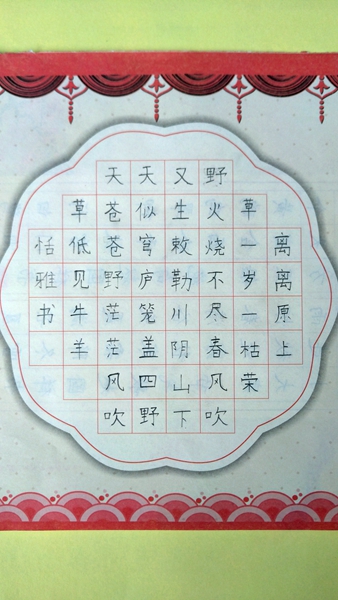 离离原上
草一岁一枯荣
野火烧不尽春风吹
又生敕勒川阴山下
天似穹庐笼盖四野
天苍苍野茫茫风吹
草低见牛羊
恬雅书